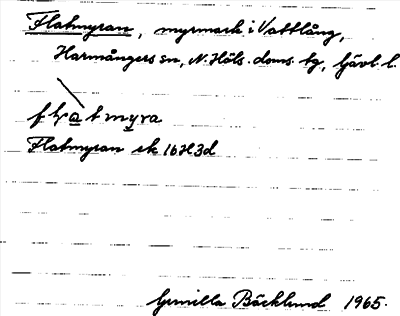 Flatmyran, myrmark i Vattlång,
Harmångers sn, N. Häls. doms. tg, Gävl. l.
flatmyra
Flatmyran ek 16H3d
Gunilla Bäcklund 1965.